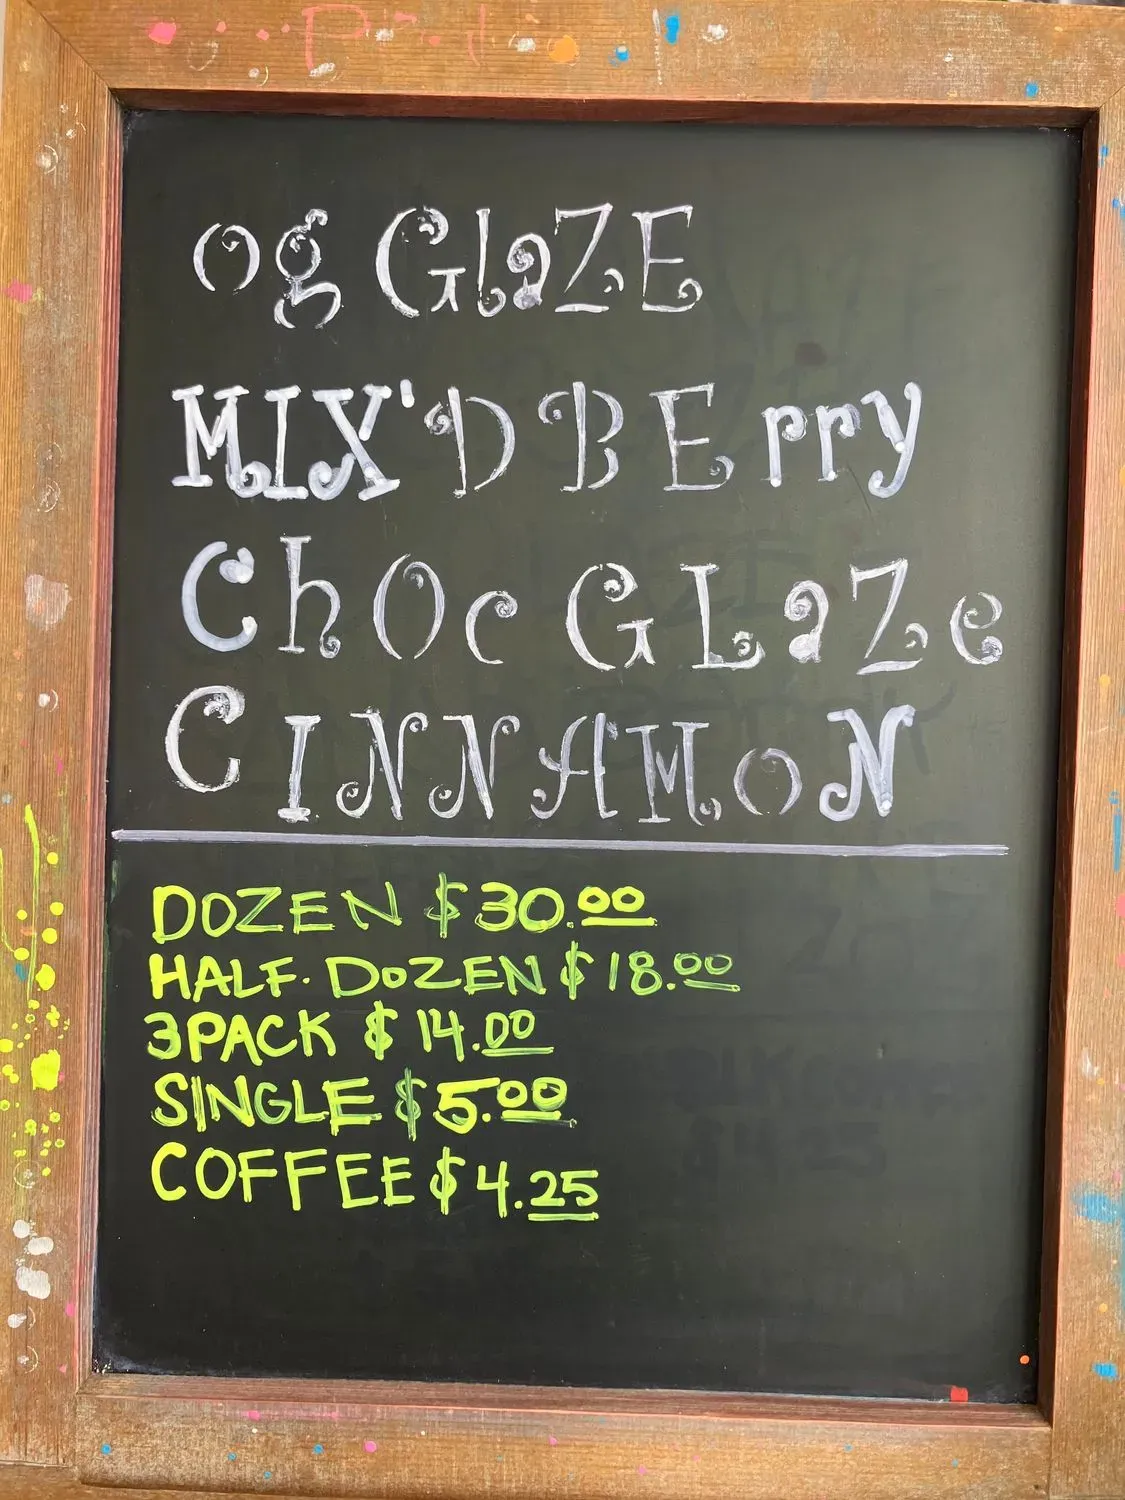 og GLaZE
MIX'D BErry
ChOc GLaZe
CINNAMoN
DOZEN $30.00
HALF. DOZEN $18.00
3PACK $14.00
SINGLE $5.00
COFFEE $4.25